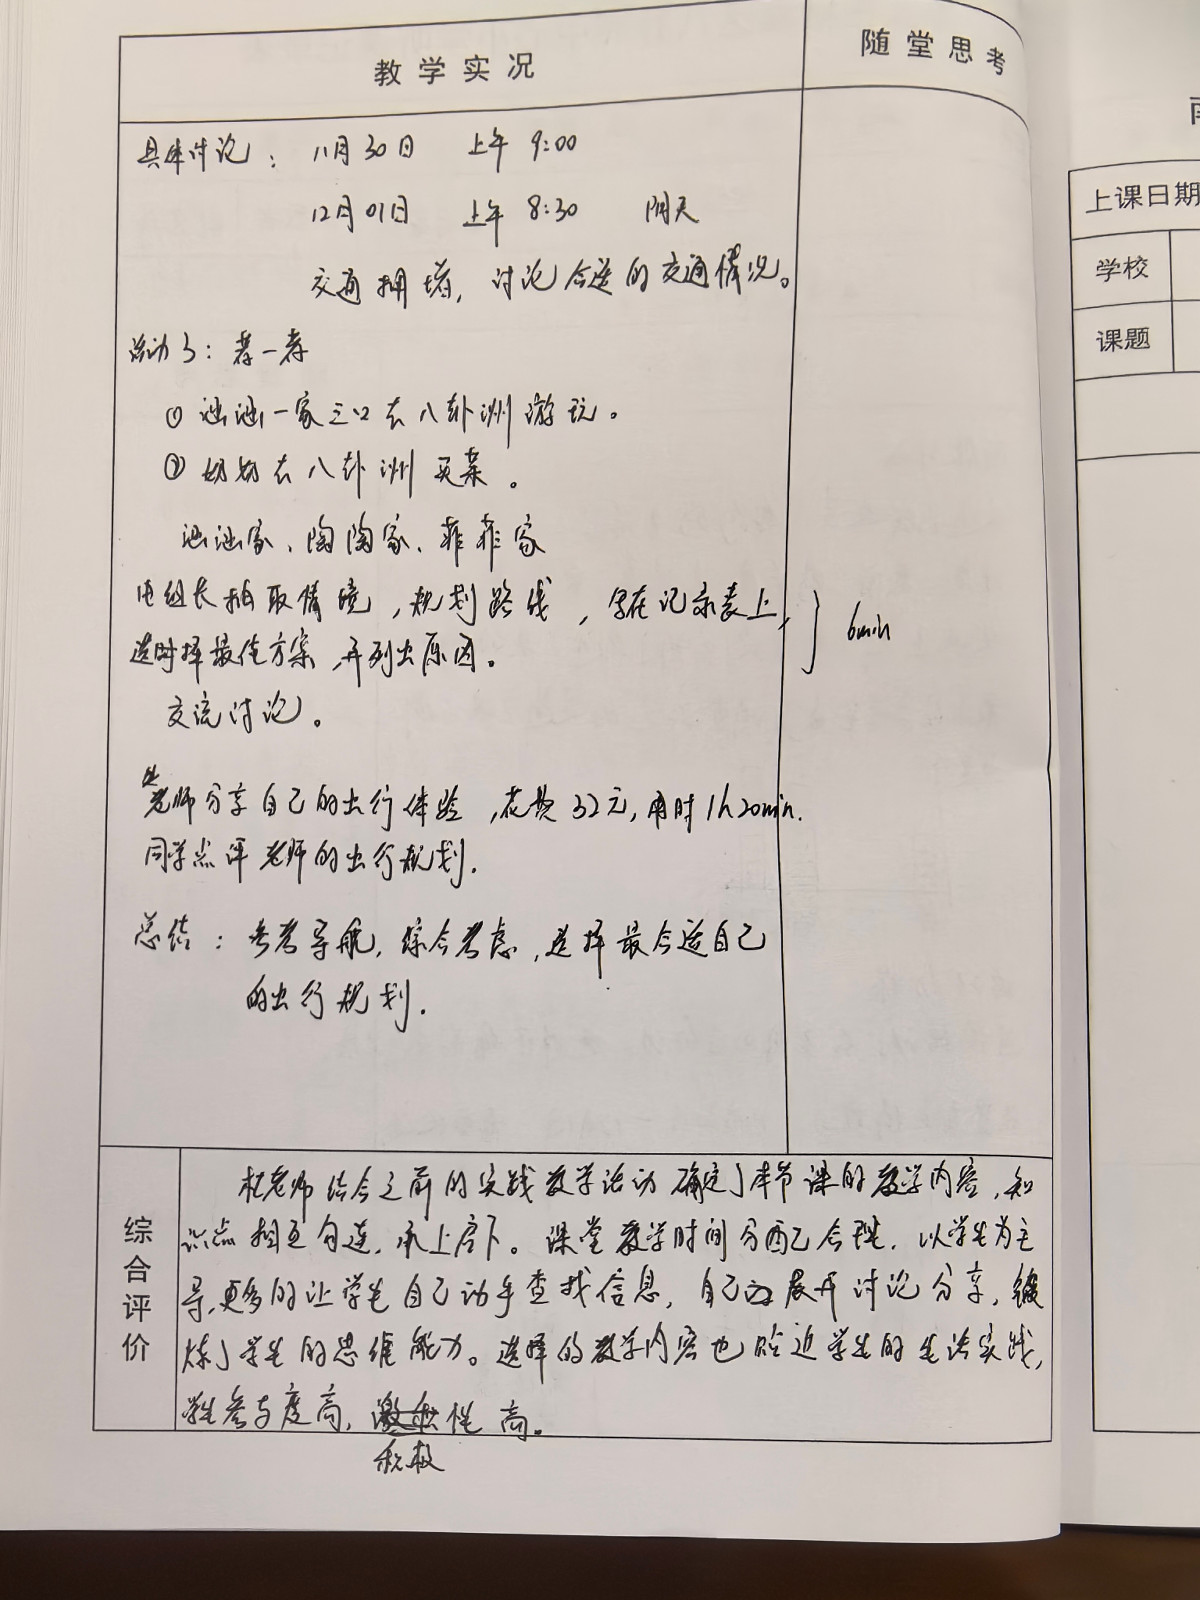 教学实况
随堂思考
具体讨论： 11月30日 上午 9:00
12月01日 上午 8:30 阴天
交通拥堵，讨论合适的交通情况。
活动3：考一考
① 涵涵一家三口去八卦洲游玩。
② 奶奶去八卦洲买菜。
涵涵家、陶陶家、菲菲家
由组长抽取情境，规划路线，写在记录表上，
选择最佳方案，并列出原因。
6min
交流讨论。
老师分享自己的出行体验，花费32元，用时1h20min.
同学点评老师的出行规划.
总结：参考导航，综合考虑，选择最合适自己
的出行规划.
综合评价
杜老师结合之前的实践教学活动确定了本节课的教学内容，知
识点相互勾连，承上启下。课堂教学时间分配已合理，以学生为主
导，更多的让学生自己动手查找信息，自己展开讨论分享，锻
炼了学生的思维能力。选择的教学内容也贴近学生的生活实践，
学生参与度高，性高。
积极
上课日期
学校
课题